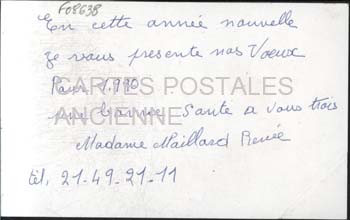 F08638
En cette année nouvelle
je vous presente nos Voeux
Pour 1990
CARTES POSTALES
ANCIENNES
une bonne Sante a vous trois
Madame Maillard Renée
tél. 21-49-21-11